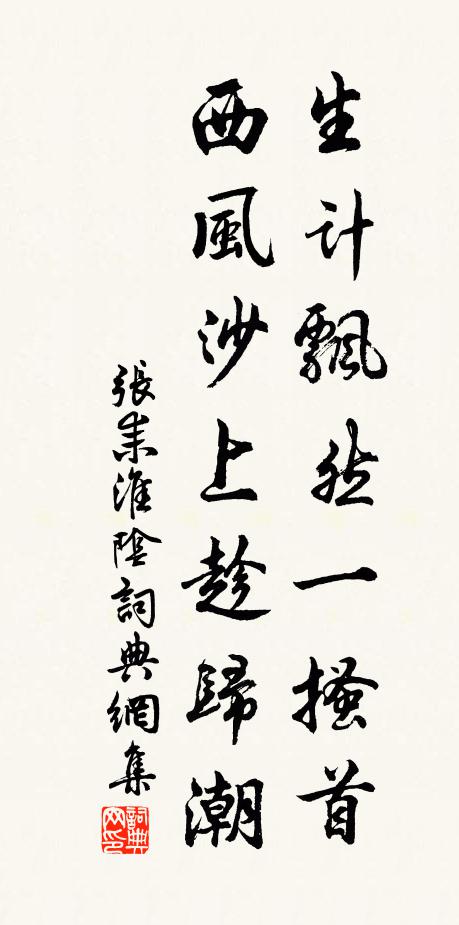 生計飄然一搔首
西風沙上趁歸潮
張耒淮陰詞典網集
詞典網印